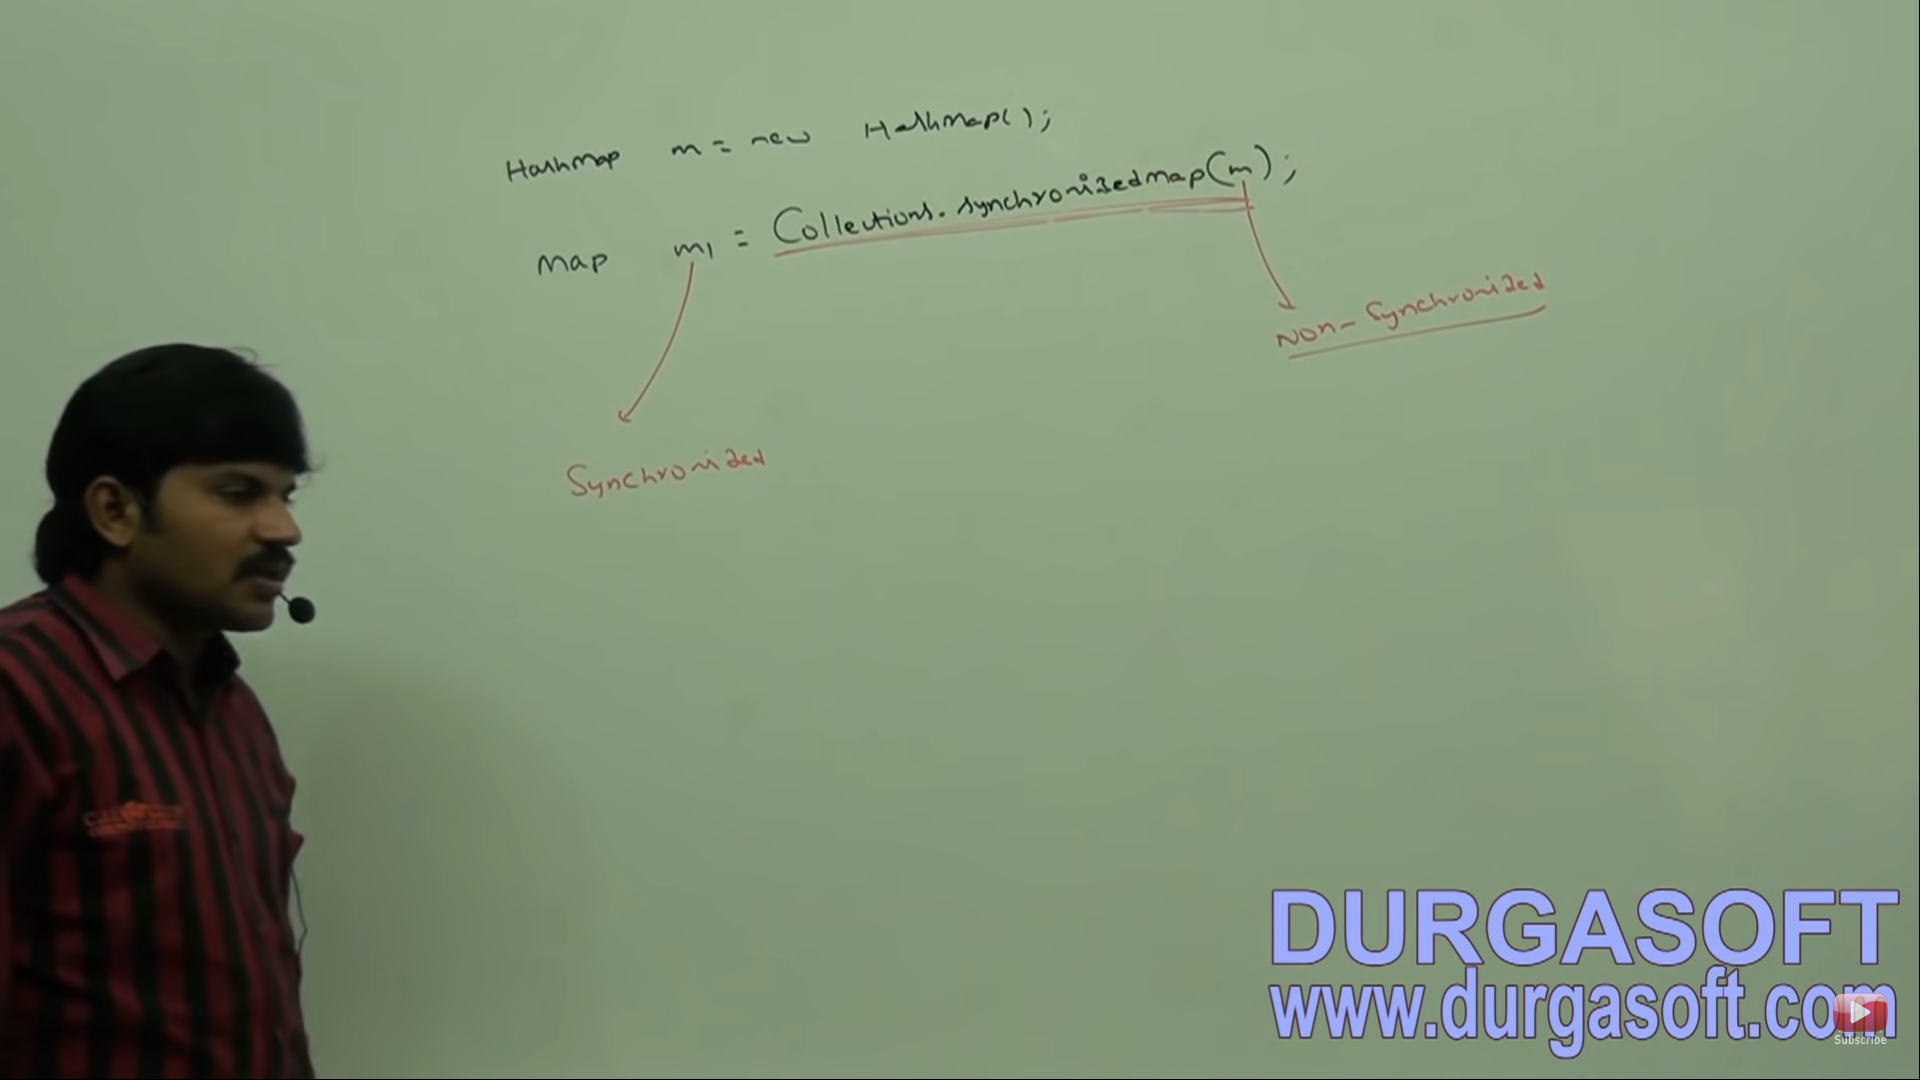 HashMap m = new HashMap();
Map m1 = Collections.synchronizedMap(m);
Non-Synchronized
Synchronized
DURGASOFT
www.durgasoft.com
Subscribe